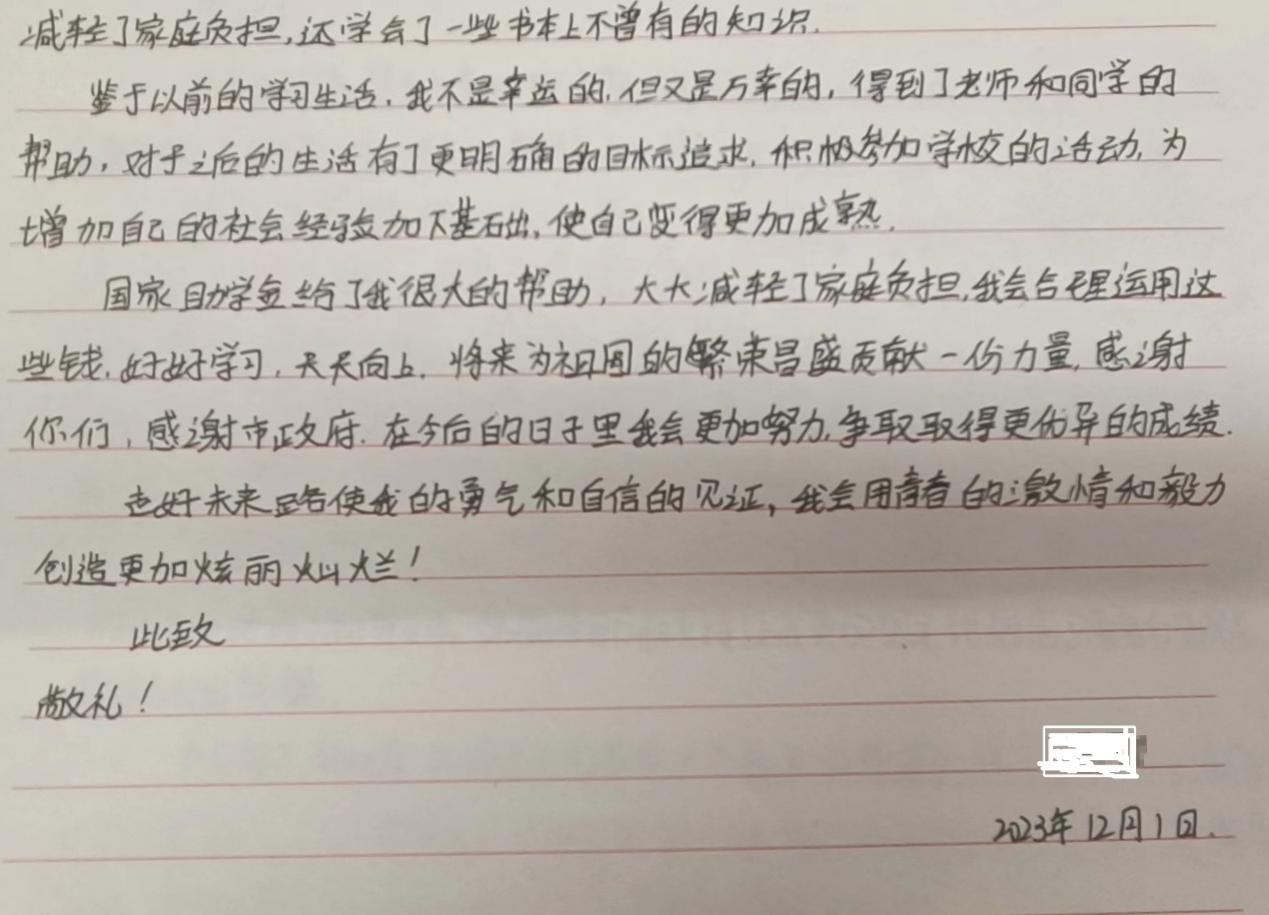 减轻了家庭负担,还学会了一些书本上不曾有的知识.
鉴于以前的学习生活,我不是幸运的,但又是万幸的,得到了老师和同学的
帮助,对于之后的生活有了更明确的目标追求.积极参加学校的活动,为
增加自己的社会经验加下基础,使自己变得更加成熟.
国家助学金给了我很大的帮助,大大减轻了家庭负担,我会合理运用这
些钱.好好学习,天天向上.将来为祖国的繁荣昌盛贡献一份力量,感谢
你们,感谢市政府.在今后的日子里我会更加努力,争取取得更优异的成绩.
走好未来路使我的勇气和自信的见证,我会用青春的激情和毅力
创造更加炫丽灿烂!
此致
敬礼!
2023年12月1日.